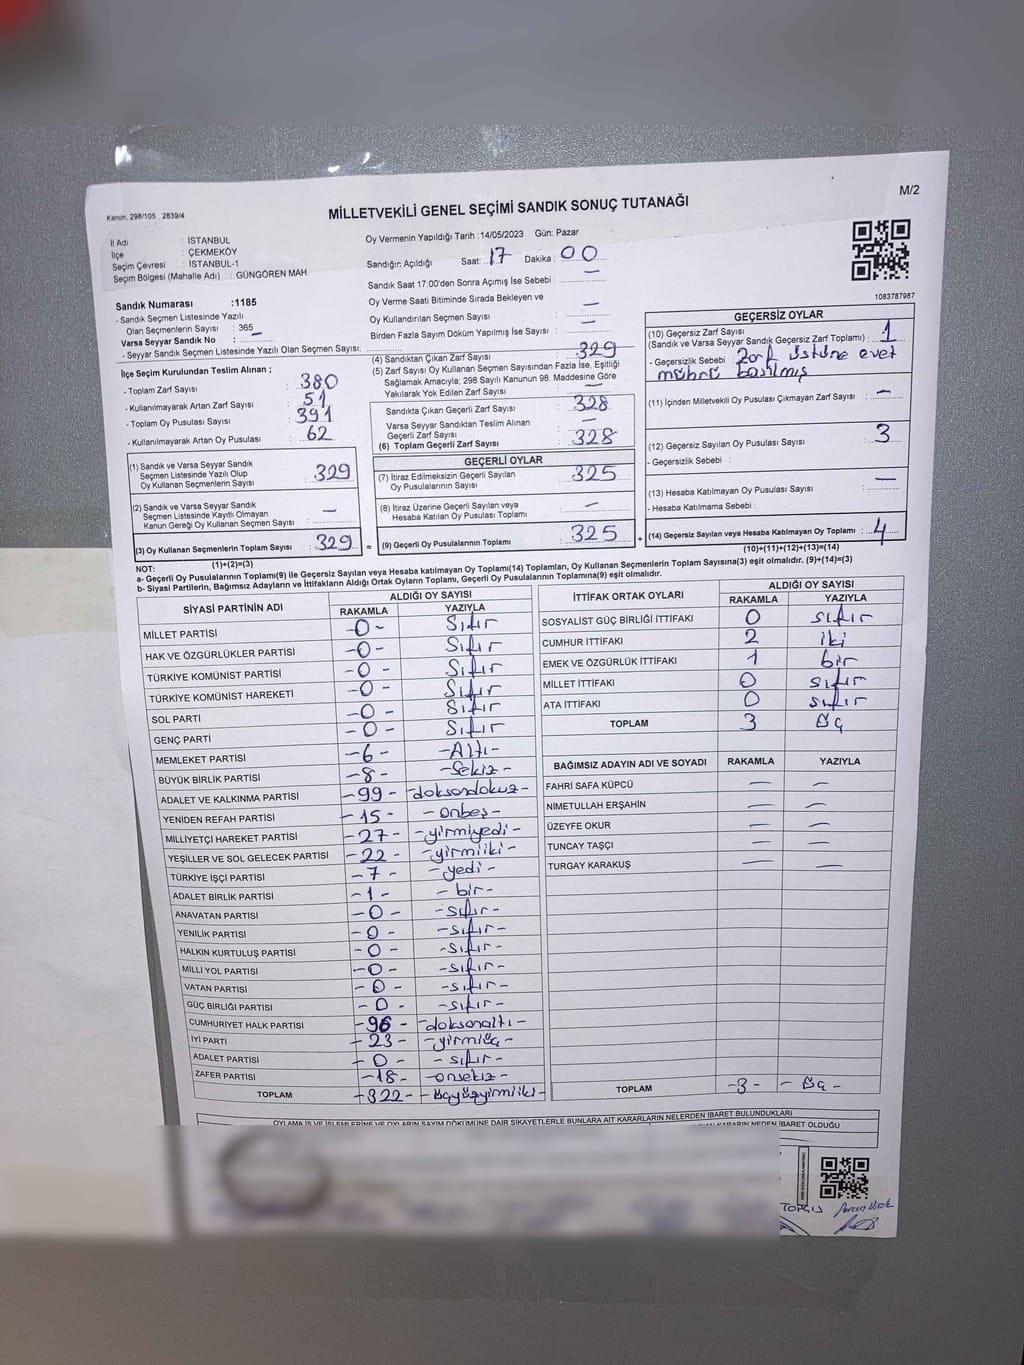 Kanun: 298/105 2839/4
MİLLETVEKİLİ GENEL SEÇİMİ SANDIK SONUÇ TUTANAĞI
M/2
İl Adı : İSTANBUL
İlçe : ÇEKMEKÖY
Seçim Çevresi : İSTANBUL-1
Seçim Bölgesi (Mahalle Adı) : GÜNGÖREN MAH.
Oy Vermenin Yapıldığı Tarih :14/05/2023 Gün: Pazar
Sandığın Açıldığı Saat: 17 Dakika: 00
Sandık Saat 17:00'den Sonra Açımış İse Sebebi : —
Oy Verme Saati Bitiminde Sırada Bekleyen ve
Oy Kullandırılan Seçmen Sayısı : —
Birden Fazla Sayım Döküm Yapılmış İse Sayısı : —
1083787987
Sandık Numarası :1185
- Sandık Seçmen Listesinde Yazılı
Olan Seçmenlerin Sayısı : 365
Varsa Seyyar Sandık No : —
- Seyyar Sandık Seçmen Listesinde Yazılı Olan Seçmen Sayısı:
İlçe Seçim Kurulundan Teslim Alınan ;
- Toplam Zarf Sayısı : 380
- Kullanılmayarak Artan Zarf Sayısı : 51
- Toplam Oy Pusulası Sayısı : 391
- Kullanılmayarak Artan Oy Pusulası : 62
(1) Sandık ve Varsa Seyyar Sandık
Seçmen Listesinde Yazılı Olup
Oy Kullanan Seçmenlerin Sayısı : 329
(2) Sandık ve Varsa Seyyar Sandık
Seçmen Listesinde Kayıtlı Olmayan
Kanun Gereği Oy Kullanan Seçmen Sayısı : —
(3) Oy Kullanan Seçmenlerin Toplam Sayısı : 329 =
(1)+(2)=(3)
(4) Sandıktan Çıkan Zarf Sayısı : 329
(5) Zarf Sayısı Oy Kullanan Seçmen Sayısından Fazla İse, Eşitliği
Sağlamak Amacıyla; 298 Sayılı Kanunun 98. Maddesine Göre
Yakılarak Yok Edilen Zarf Sayısı : —
Sandıkta Çıkan Geçerli Zarf Sayısı : 328
Varsa Seyyar Sandıktan Teslim Alınan
Geçerli Zarf Sayısı : —
(6) Toplam Geçerli Zarf Sayısı : 328
GEÇERLİ OYLAR
(7) İtiraz Edilmeksizin Geçerli Sayılan
Oy Pusulalarının Sayısı : 325
(8) İtiraz Üzerine Geçerli Sayılan veya
Hesaba Katılan Oy Pusulası Toplamı : —
(9) Geçerli Oy Pusulalarının Toplamı : 325 +
GEÇERSİZ OYLAR
(10) Geçersiz Zarf Sayısı
(Sandık ve Varsa Seyyar Sandık Geçersiz Zarf Toplamı) : 1
- Geçersizlik Sebebi : Zarf üstüne evet
mührü basılmış
(11) İçinden Milletvekili Oy Pusulası Çıkmayan Zarf Sayısı : —
(12) Geçersiz Sayılan Oy Pusulası Sayısı : 3
- Geçersizlik Sebebi :
(13) Hesaba Katılmayan Oy Pusulası Sayısı : —
- Hesaba Katılmama Sebebi :
(14) Geçersiz Sayılan veya Hesaba Katılmayan Oy Toplamı : 4
(10)+(11)+(12)+(13)=(14)
NOT:
a- Geçerli Oy Pusulalarının Toplamı(9) ile Geçersiz Sayılan veya Hesaba katılmayan Oy Toplamı(14) Toplamları, Oy Kullanan Seçmenlerin Toplam Sayısına(3) eşit olmalıdır. (9)+(14)=(3)
b- Siyasi Partilerin, Bağımsız Adayların ve İttifakların Aldığı Ortak Oyların Toplamı, Geçerli Oy Pusulalarının Toplamına(9) eşit olmalıdır.
SİYASİ PARTİNİN ADI ALDIĞI OY SAYISI
RAKAMLA YAZIYLA
MİLLET PARTİSİ -0- Sıfır
HAK VE ÖZGÜRLÜKLER PARTİSİ -0- Sıfır
TÜRKİYE KOMÜNİST PARTİSİ -0- Sıfır
TÜRKİYE KOMÜNİST HAREKETİ -0- Sıfır
SOL PARTİ -0- Sıfır
GENÇ PARTİ -0- Sıfır
MEMLEKET PARTİSİ -6- -Altı-
BÜYÜK BİRLİK PARTİSİ -8- -Sekiz-
ADALET VE KALKINMA PARTİSİ -99- -doksandokuz-
YENİDEN REFAH PARTİSİ -15- -onbeş-
MİLLİYETÇİ HAREKET PARTİSİ -27- -yirmiyedi-
YEŞİLLER VE SOL GELECEK PARTİSİ -22- -yirmiiki-
TÜRKİYE İŞÇİ PARTİSİ -7- -yedi-
ADALET BİRLİK PARTİSİ -1- -bir-
ANAVATAN PARTİSİ -0- -sıfır-
YENİLİK PARTİSİ -0- -sıfır-
HALKIN KURTULUŞ PARTİSİ -0- -sıfır-
MİLLİ YOL PARTİSİ -0- -sıfır-
VATAN PARTİSİ -0- -sıfır-
GÜÇ BİRLİĞİ PARTİSİ -0- -sıfır-
CUMHURİYET HALK PARTİSİ -96- -doksanaltı-
İYİ PARTİ -23- -yirmiüç-
ADALET PARTİSİ -0- -sıfır-
ZAFER PARTİSİ -18- -onsekiz-
TOPLAM -322- -üçyüzyirmiiki-
İTTİFAK ORTAK OYLARI ALDIĞI OY SAYISI
RAKAMLA YAZIYLA
SOSYALİST GÜÇ BİRLİĞİ İTTİFAKI 0 sıfır
CUMHUR İTTİFAKI 2 iki
EMEK VE ÖZGÜRLÜK İTTİFAKI 1 bir
MİLLET İTTİFAKI 0 sıfır
ATA İTTİFAKI 0 sıfır
TOPLAM 3 Üç
BAĞIMSIZ ADAYIN ADI VE SOYADI RAKAMLA YAZIYLA
FAHRİ SAFA KÜPCÜ — —
NİMETULLAH ERŞAHİN — —
ÜZEYFE OKUR — —
TUNCAY TAŞÇI — —
TURGAY KARAKUŞ — —
TOPLAM -3- -Üç-
OYLAMA İŞ VE İŞLEMLERİNE VE OYLARIN SAYIM DÖKÜMÜNE DAİR ŞİKAYETLERLE BUNLARA AİT KARARLARIN NELERDEN İBARET BULUNDUKLARI
KARARIN NEDEN İBARET OLDUĞU